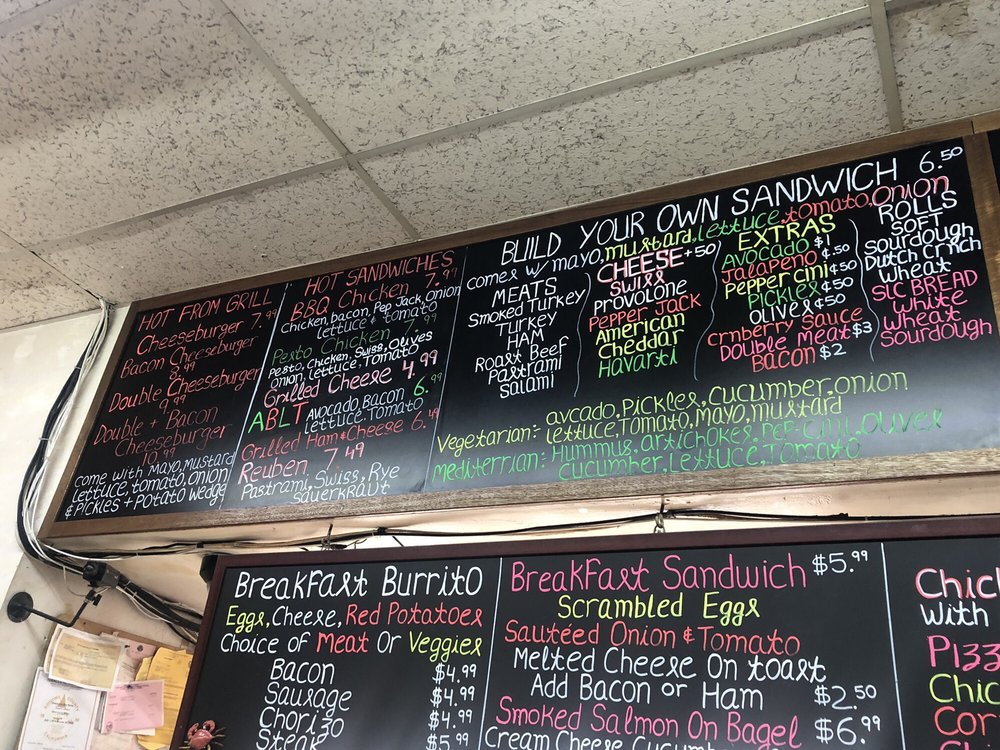 HOT FROM GRILL
Cheeseburger 7.99
Bacon Cheeseburger
8.99
Double Cheeseburger
9.99
Double + Bacon
Cheeseburger
10.99
come with Mayo, mustard
lettuce, tomato, onion
& Pickles + Potato Wedge
HOT SANDWICHES
BBQ Chicken 7.99
Chicken, bacon, Pep Jack, onion
lettuce & tomato
Pesto Chicken 7.99
Pesto, Chicken, Swiss, Olives
onion, lettuce, Tomato
Grilled Cheese 4.99
ABLT Avocado Bacon 6.99
lettuce, Tomato
Grilled Ham & Cheese 6.49
Reuben 7.49
Pastrami, Swiss, Rye
Sauerkraut
BUILD YOUR OWN SANDWICH 6.50
comes w/ mayo, mustard, lettuce, tomato, onion
MEATS
Smoked Turkey
Turkey
HAM
Roast Beef
Pastrami
Salami
CHEESE +50
SWISS
PROVOLONE
Pepper Jack
American
Cheddar
Havarti
EXTRAS
Avocado $1
Jalapeno ¢.50
Pepper cini ¢50
Pickles ¢50
olives ¢50
crnberry Sauce
Double Meat $3
Bacon $2
ROLLS
SOFT
Sourdough
Dutch Crnch
Wheat
SLC BREAD
White
Wheat
Sourdough
Vegetarian:- avcado, Pickles, cucumber, onion
lettuce, Tomato, Mayo, mustard
Mediterrian:- Hummus, artichokes, PeP-Cini, olives
cucumber, lettuce, Tomato
BreakFast Burrito
Eggs, Cheese, Red Potatoes
Choice of Meat Or Veggies
Bacon $4.99
Sausage $4.99
Chorizo $4.99
Steak $5.99
BreakFast Sandwich $5.99
Scrambled Eggs
Sautéed Onion & Tomato
Melted Cheese On toast
Add Bacon or Ham $2.50
Smoked Salmon On Bagel $6.99
Cream Cheese Cucumber
Chic
With
Pizz
Chic
Cor